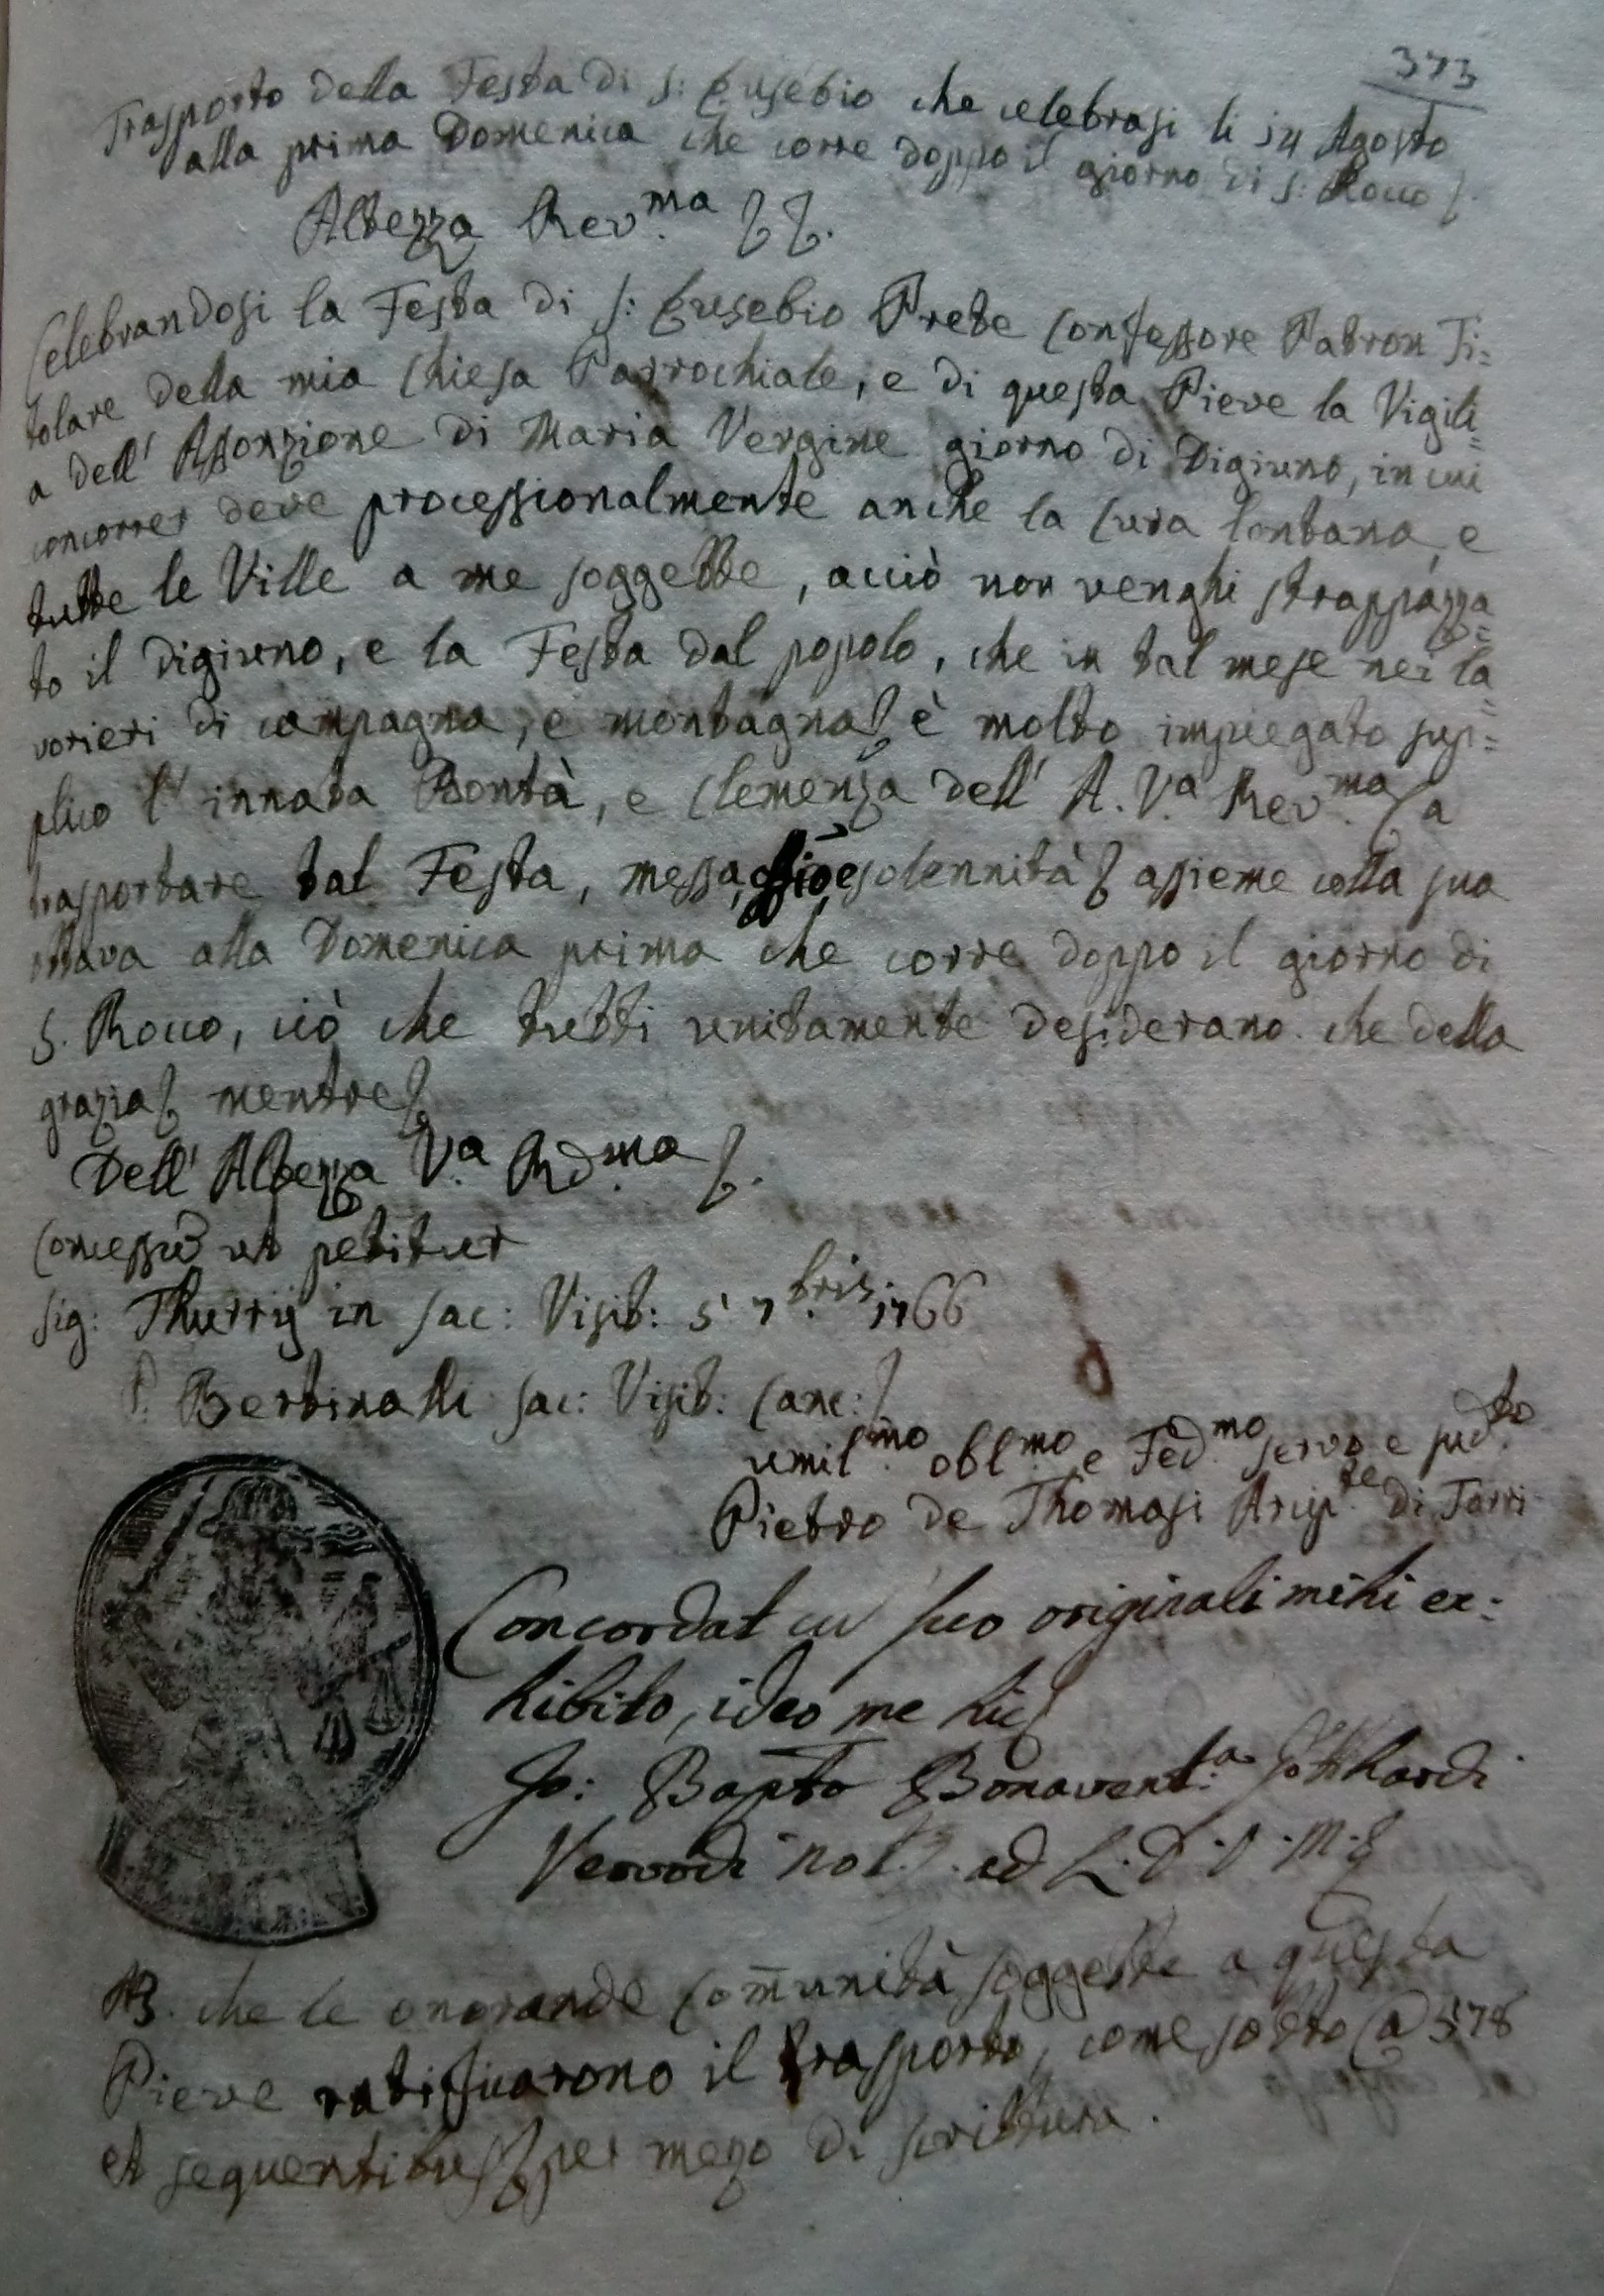 373
Trasporto della Festa di S: Eusebio che celebrasi li 14 Agosto
alla prima Domenica che corre doppo il giorno di S: Rocco
Altezza Rev.ma
Celebrandosi la Festa di S: Eusebio Prete Confessore Patron Ti=
tolare della mia Chiesa Parrochiale, e di questa Pieve la Vigili=
a dell' Assonzione di Maria Vergine giorno di Digiuno, in cui
concorrer deve processionalmente anche la Cura lontana, e
tutte le Ville a me soggette, acciò non venghi strappazza=
to il digiuno, e la Festa dal popolo, che in tal mese nei la=
vorieri di campagna, e montagna è molto impiegato sup=
plico l' innata Bontà, e Clemenza dell' A. V.a Rev.ma a
trasportare tal Festa, messa, e solennità assieme colla sua
ottava alla Domenica prima che corre doppo il giorno di
S. Rocco, ciò che tutti unitamente desiderano. che della
grazia mentre
Dell' Altezza V.a Rd.ma
Concessũ ut petitur
Sig: Thurrij in sac: Visit: 5 7bris 1766
P. Bertinalli sac: Visit: Canc:
umil.mo obl.mo e Fed.mo servo e sud.to
Pietro de Thomasi Arcip.te di Torri
Concordat cũ suo originali mihi ex=
hibito, ideo me hic
Jo: Bapta Bonavent.a Gotthardi
not. ad L. D. V. M.
NB. che le onorande Com̃unità soggette a questa
Pieve ratificarono il trasporto, come sotto @ 578
et sequentibus per mezo di scrittura.